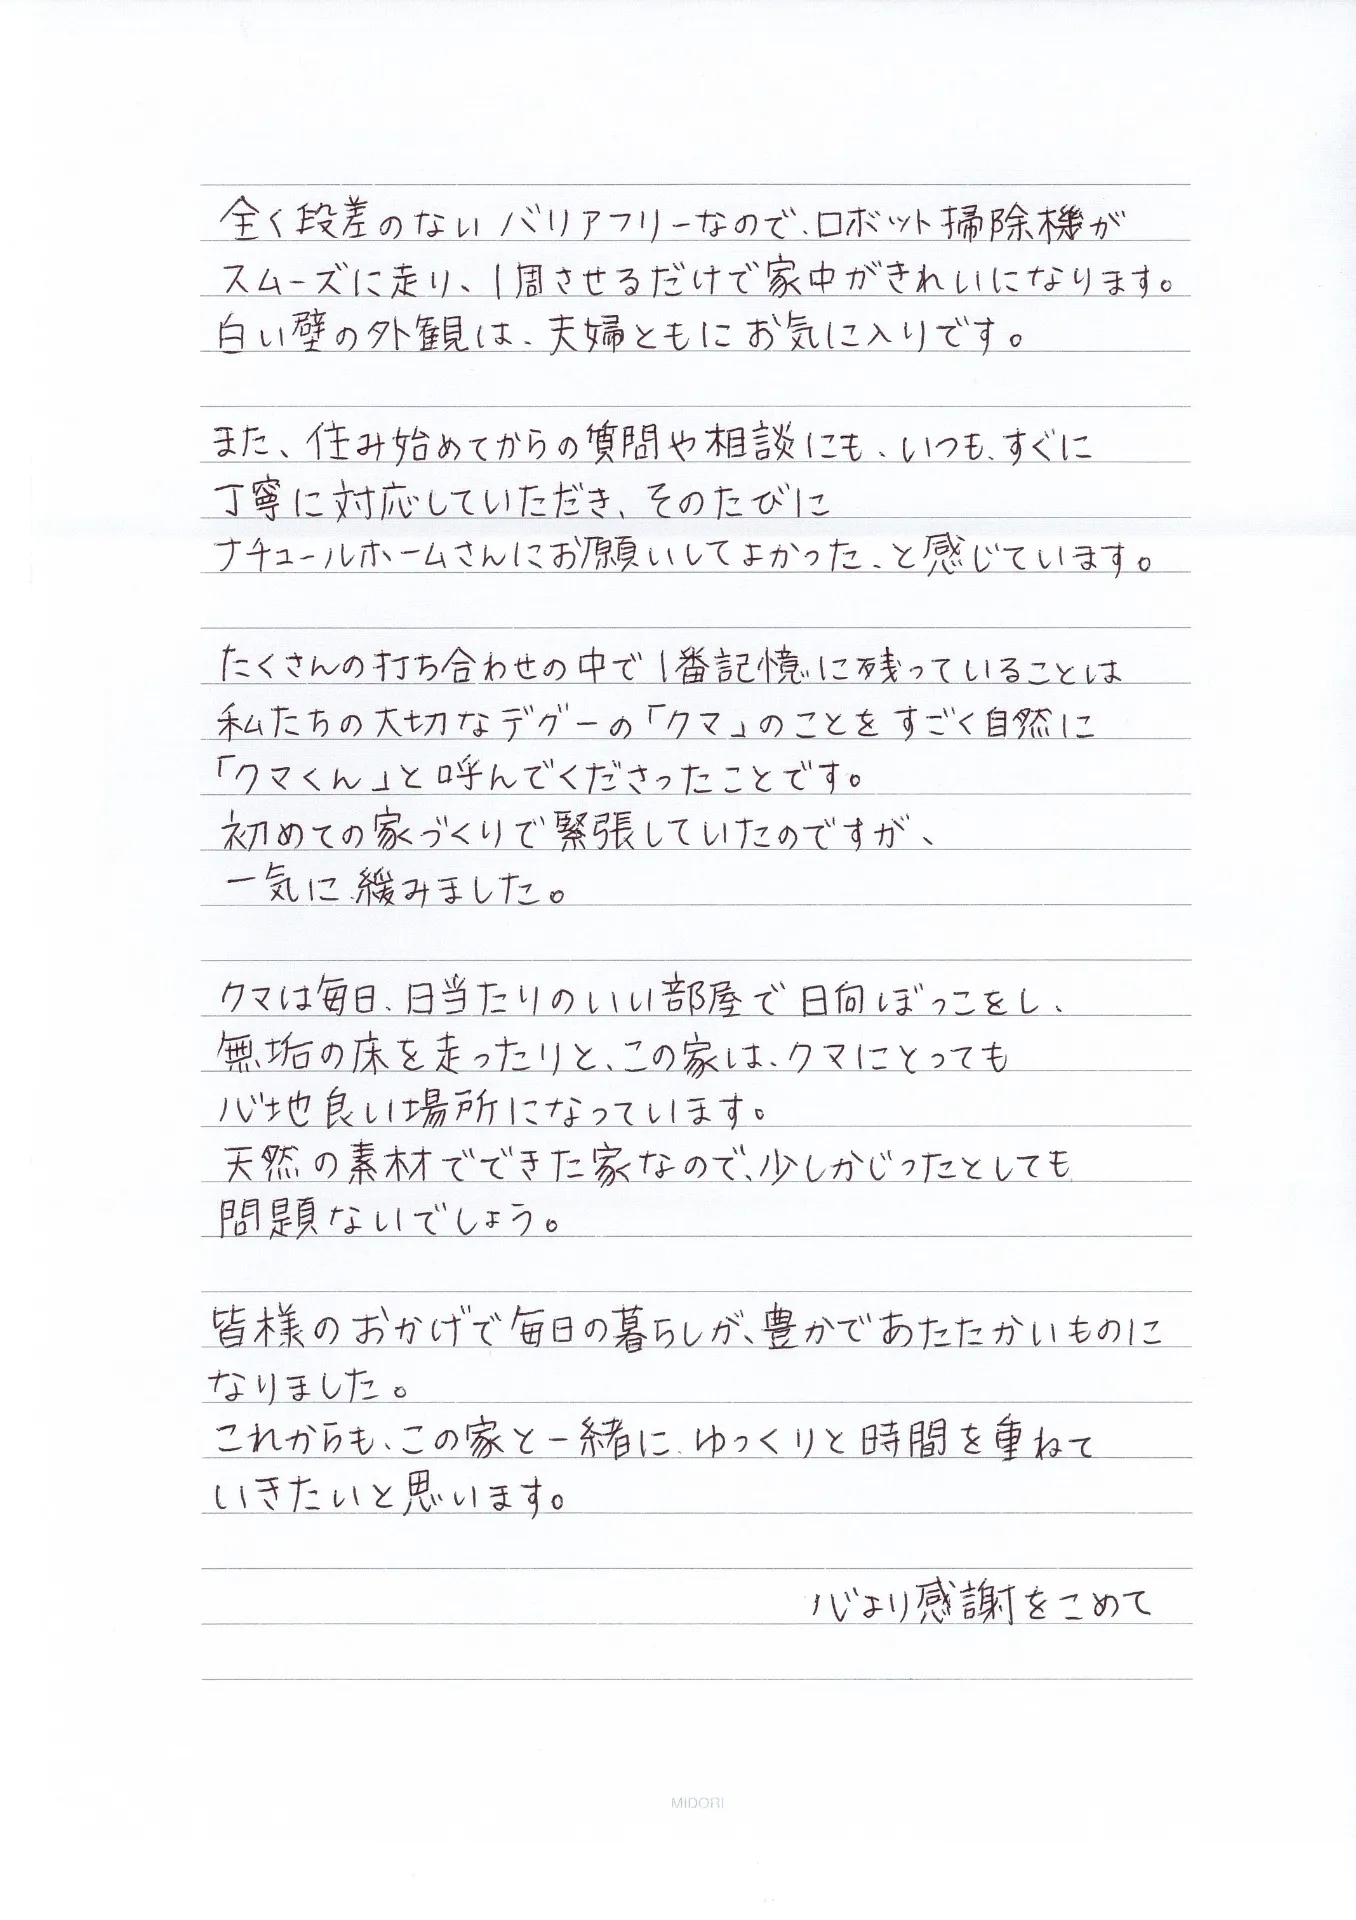 全く段差のないバリアフリーなので、ロボット掃除機が
スムーズに走り、1周させるだけで家中がきれいになります。
白い壁の外観は、夫婦ともにお気に入りです。
また、住み始めてからの質問や相談にも、いつも、すぐに
丁寧に対応していただき、そのたびに
ナチュールホームさんにお願いしてよかった、と感じています。
たくさんの打ち合わせの中で1番記憶に残っていることは
私たちの大切なデグーの「クマ」のことをすごく自然に
「クマくん」と呼んでくださったことです。
初めての家づくりで緊張していたのですが、
一気に緩みました。
クマは毎日、日当たりのいい部屋で日向ぼっこをし、
無垢の床を走ったりと、この家は、クマにとっても
心地良い場所になっています。
天然の素材でできた家なので、少しかじったとしても
問題ないでしょう。
皆様のおかげで毎日の暮らしが、豊かであたたかいものに
なりました。
これからも、この家と一緒に、ゆっくりと時間を重ねて
いきたいと思います。
心より感謝をこめて
MIDORI